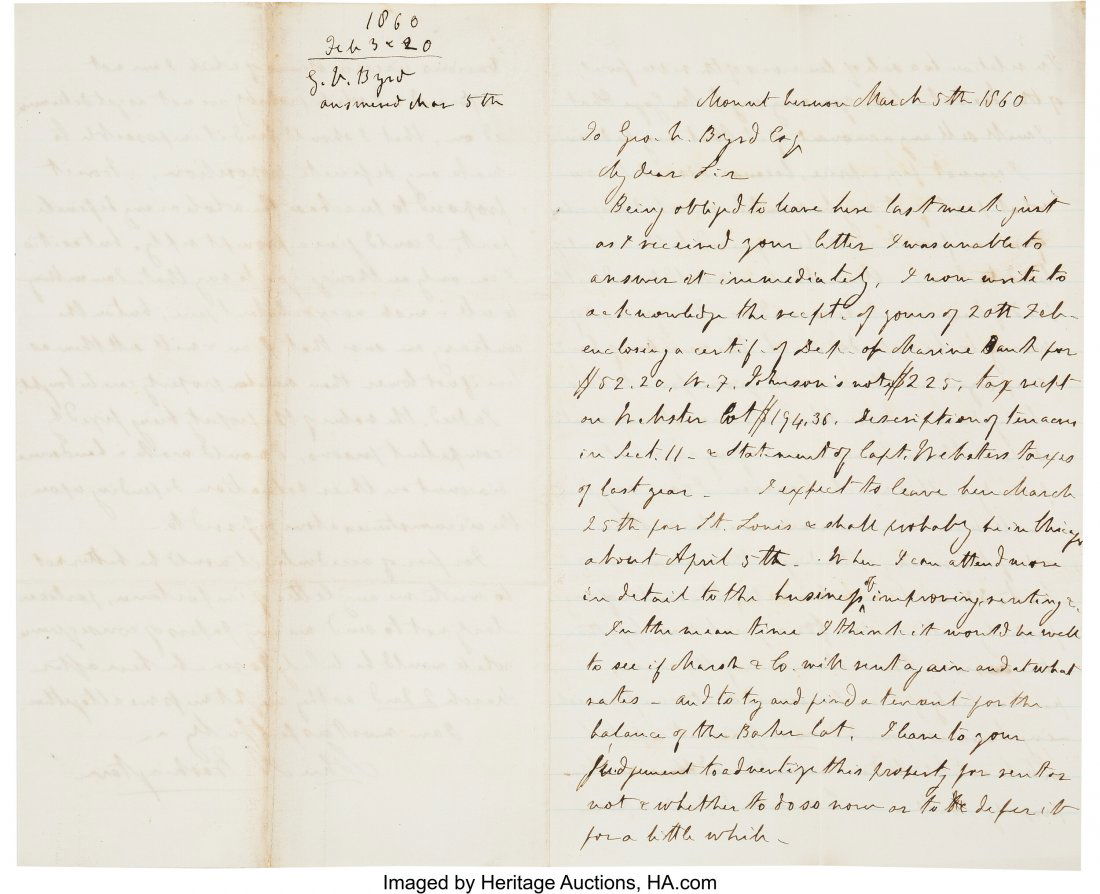 1860
Feb 3 & 20
G. V. Byrd
answered Mar 5th
Mount Vernon March 5th 1860
To Geo. V. Byrd Esq
My dear Sir
Being obliged to leave here last week just
as I received your letter I was unable to
answer it immediately, I now write to
acknowledge the recpt. of yours of 20th Feb-
enclosing a certif. of Dep. of Marine Bank for
$52.20, W. F. Johnson's note $225, tax recpt
on Webster lot $194.36. Description of ten acres
in Sect. 11 - & Statement of Capt. Websters taxes
of last year - I expect to leave here March
25th for St. Louis & shall probably be in Chicago
about April 5th. When I can attend more
in detail to the business of improving, renting &c.
In the mean time I think it would be well
to see if Marsh & Co. will rent again and at what
rates - and to ty and find a tenant for the
balance of the Baker lot. I leave to your
judgement to advertize this property for rent or
not & whether to do so now or to defer it
for a little while -
Imaged by Heritage Auctions, HA.com